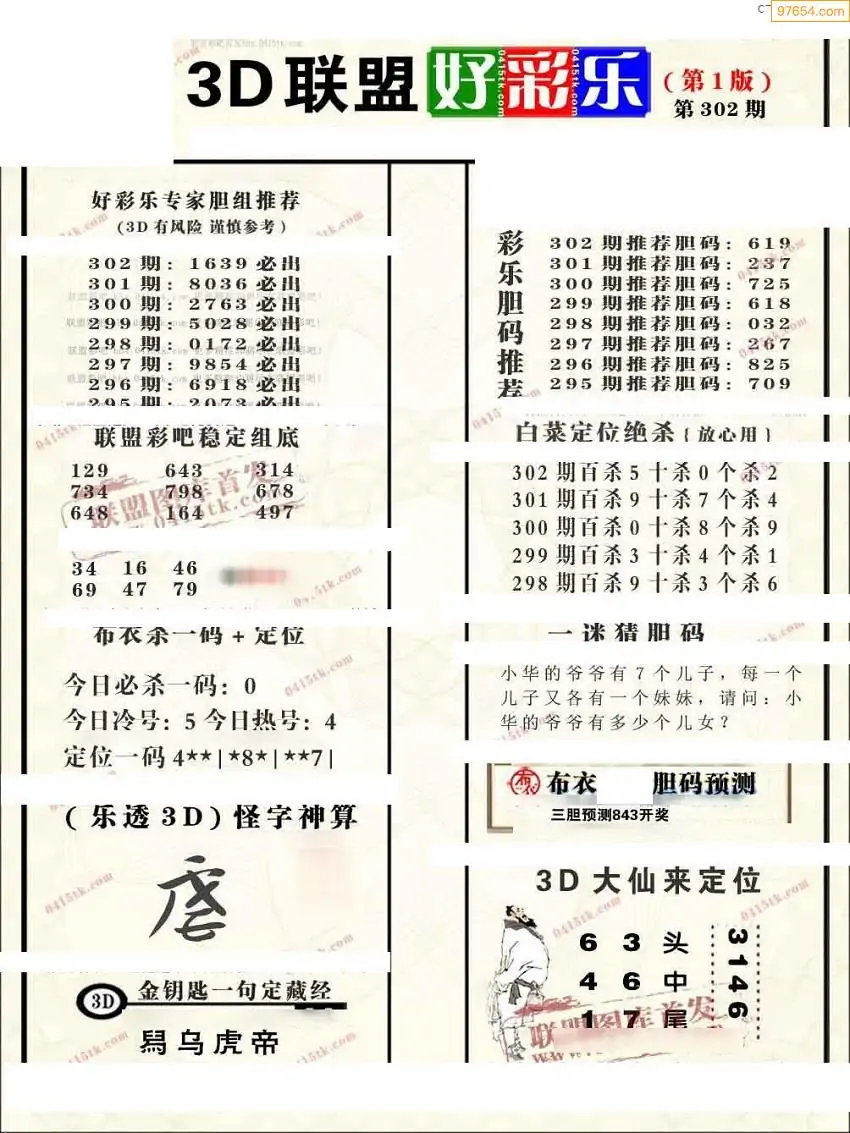 97654.com
3D联盟好彩乐
(第1版)
第302期
好彩乐专家胆组推荐
(3D有风险 谨慎参考)
302期: 1639必出
301期: 8036必出
300期: 2763必出
299期: 5028必出
298期: 0172必出
297期: 9854必出
296期: 6918必出
295期: 2073必出
联盟彩吧稳定组底
129 643 314
734 798 678
648 164 497
34 16 46
69 47 79
布衣杀一码+定位
今日必杀一码: 0
今日冷号: 5 今日热号: 4
定位一码4★★|★8★|★★7|
(乐透3D)怪字神算
3D 金钥匙一句定藏经
乌虎帝
彩乐胆码推荐
302期推荐胆码: 619
301期推荐胆码: 237
300期推荐胆码: 725
299期推荐胆码: 618
298期推荐胆码: 032
297期推荐胆码: 267
296期推荐胆码: 825
295期推荐胆码: 709
白菜定位绝杀{放心用}
302期百杀5十杀0个杀2
301期百杀9十杀7个杀4
300期百杀0十杀8个杀9
299期百杀3十杀4个杀1
298期百杀9十杀3个杀6
一迷猜胆码
小华的爷爷有7个儿子，每一个
儿子又各有一个妹妹，请问：小
华的爷爷有多少个儿女？
布衣 胆码预测
三胆预测843开奖
3D大仙来定位
6 3 头
4 6 中
1 7 尾
3146
联盟图库首发
0415tk.com